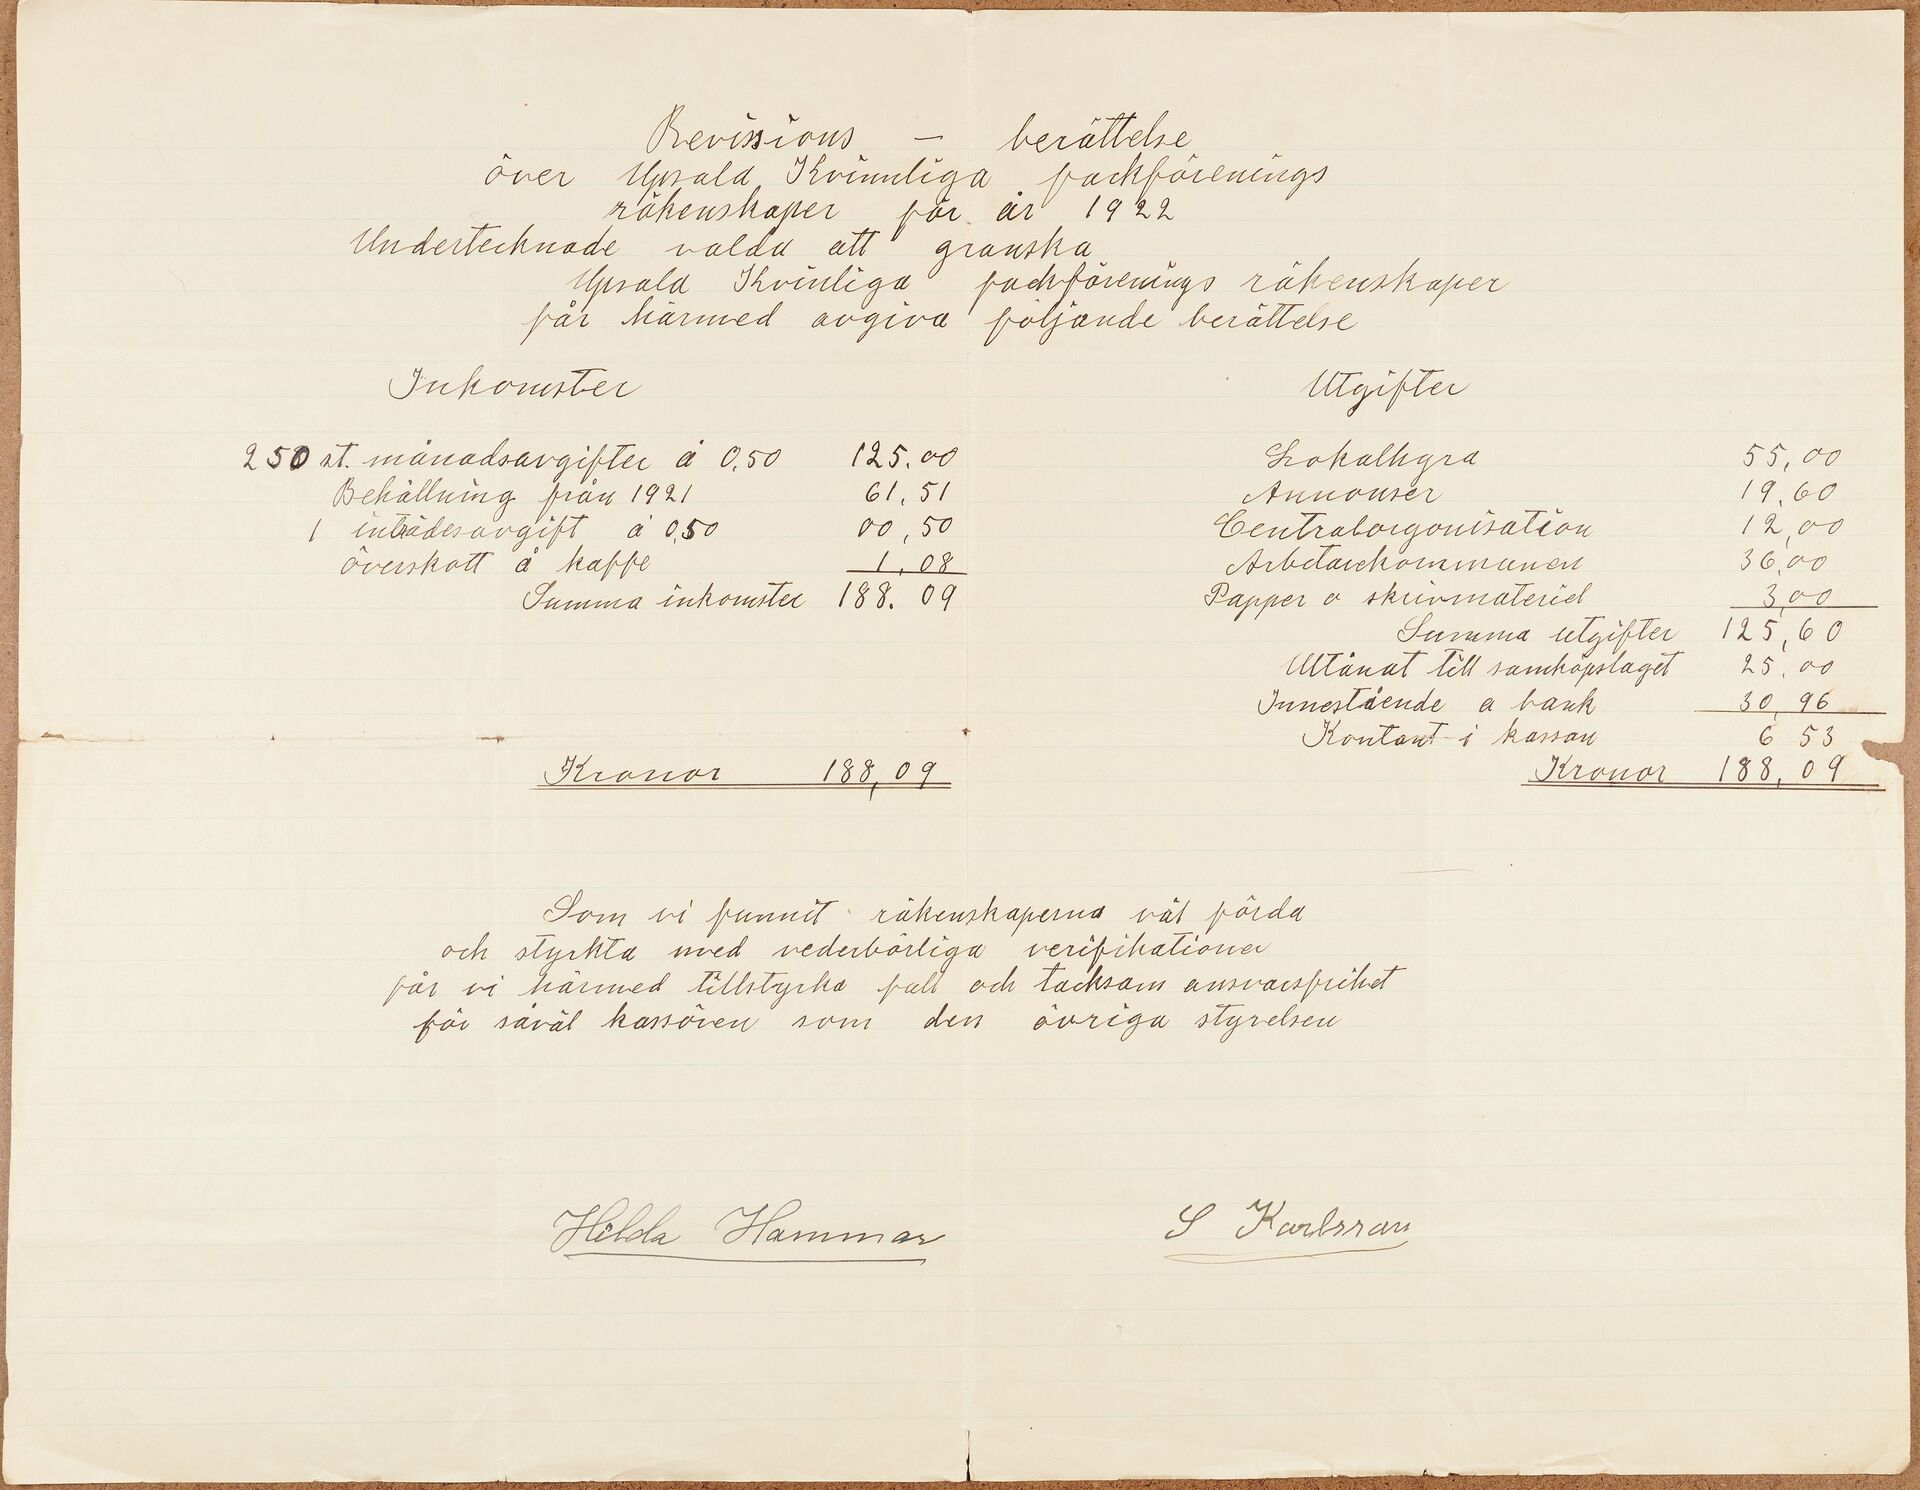 Revisions - berättelse
över Upsala Kvinnliga fackförenings
räkenskaper för år 1922
Undertecknade valda att granska
Upsala Kvinliga fackförenings räkenskaper
får härmed avgiva följande berättelse
Inkomster
250 st. månadsavgifter á 0,50 125,00
Behållning från 1921 61,51
1 inträdesavgift á 0,50 00,50
överskott á kaffe 1,08
Summa inkomster 188.09
Kronor 188,09
Utgifter
Lokalhyra 55,00
Annonser 19,60
Centralorganisation 12,00
Arbetarekommunen 36,00
Papper o skrivmateriel 3,00
Summa utgifter 125,60
Utlånat till samköpslaget 25,00
Innestående a bank 30,96
Kontant i kassan 6 53
Kronor 188,09
Som vi funnit räkenskaperna väl förda
och styrkta med vederbörliga verifikationer
får vi härmed tillstyrka full och tacksam ansvarsfrihet
för såväl kassören som den övriga styrelsen
Hilda Hammar
S Karlsson